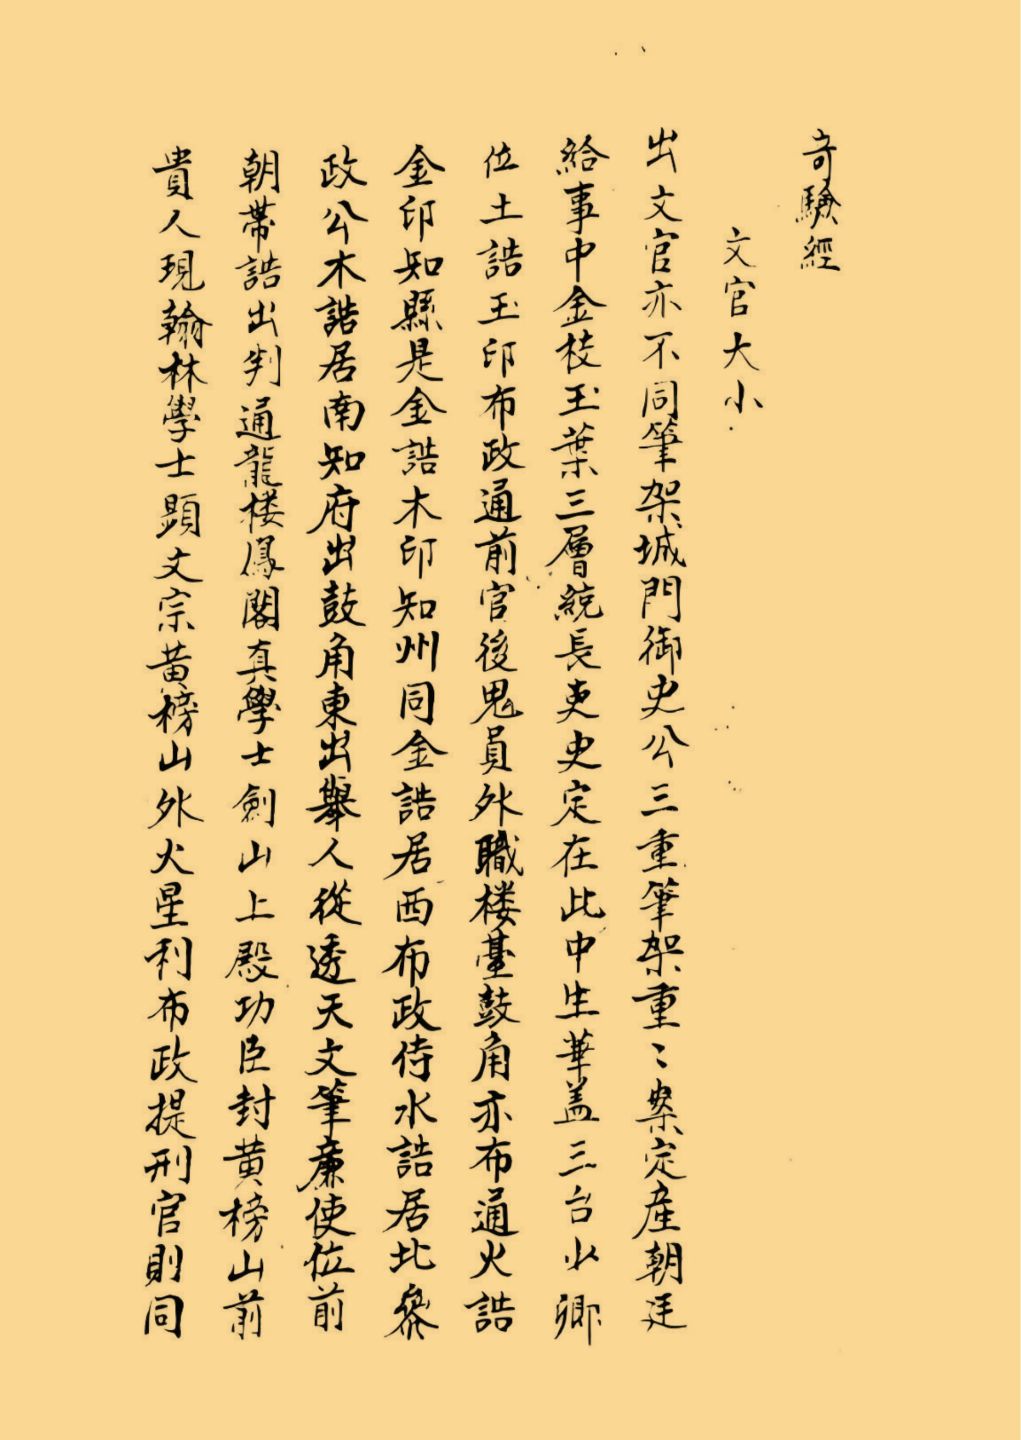 奇驗經
文官大小
出文官亦不同筆架城門御史公三重筆架重〻案定産朝廷
給事中金枝玉葉三層統長吏史定在此中生華盖三台少卿
位土誥玉印布政通前官後鬼員外職楼臺鼓角亦布通火誥
金印知縣是金誥木印知州同金誥居西布政侍水誥居北叅
政公木誥居南知府出鼓角東出舉人從透天文筆廉使位前
朝帶誥出判通龍楼鳳閣真學士劍山上殿功臣封黄榜山前
貴人現翰林學士顕文宗黄榜山外火星利布政提刑官則同